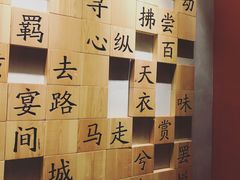 寻 拂 尝 切
羁 心 纵 百
去 天
宴 路 衣 味
间 马 走 赏
城 兮 罢